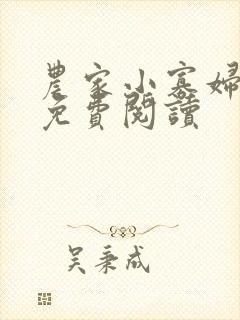 農家小寡婦
免費閱讀
吴秉成